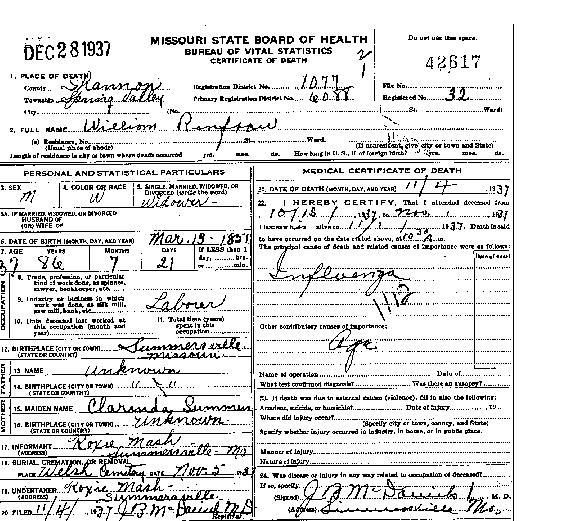 DEC 28 1937
MISSOURI STATE BOARD OF HEALTH
BUREAU OF VITAL STATISTICS
CERTIFICATE OF DEATH
Do not use this space.
42617
1. PLACE OF DEATH
County Shannon Registration District No. 1077 File No.
Township Spring Valley Primary Registration District No. 6088 Registered No. 32
City (No. St. Ward)
2. FULL NAME William Renfrow
(a) Residence, No. St. Ward.
(Usual place of abode) (If nonresident, give city or town and State)
Length of residence in city or town where death occurred yrs. mos. ds. How long in U. S., if of foreign birth? yrs. mos. ds.
PERSONAL AND STATISTICAL PARTICULARS
3. SEX M
4. COLOR OR RACE W
5. SINGLE, MARRIED, WIDOWED, OR DIVORCED (write the word) Widower
5A. IF MARRIED, WIDOWED, OR DIVORCED
HUSBAND OF
(OR) WIFE OF
6. DATE OF BIRTH (MONTH, DAY, AND YEAR) Mar. 13 - 1851
7. AGE YEARS 86 MONTHS 7 DAYS 21 If LESS than 1 day, hrs. or min.
OCCUPATION
8. Trade, profession, or particular kind of work done, as spinner, sawyer, bookkeeper, etc.
9. Industry or business in which work was done, as silk mill, saw mill, bank, etc. Laborer
10. Date deceased last worked at this occupation (month and year)
11. Total time (years) spent in this occupation
12. BIRTHPLACE (CITY OR TOWN) Summersville
(STATE OR COUNTRY) Missouri
FATHER
13. NAME Unknown
14. BIRTHPLACE (CITY OR TOWN) " "
(STATE OR COUNTRY)
MOTHER
15. MAIDEN NAME Clarenda Summers
16. BIRTHPLACE (CITY OR TOWN) Unknown
(STATE OR COUNTRY)
17. INFORMANT Roxie Mash
(ADDRESS) Summersville - Mo
18. BURIAL, CREMATION, OR REMOVAL
PLACE Welsh Cemetery DATE Nov. 5 1937
19. UNDERTAKER Roxie Mash
(ADDRESS) Summersville
20. FILED 11/4/ 1937 J B McDaniel M.D.
Registrar.
MEDICAL CERTIFICATE OF DEATH
21. DATE OF DEATH (MONTH, DAY, AND YEAR) 11/4 1937
22. I HEREBY CERTIFY, That I attended deceased from
10/15/ 1937, to Nov 1 1937
I last saw h alive on 11/1/ 1937. Death is said
to have occurred on the date stated above, at m.
The principal cause of death and related causes of importance were as follows:
Influenza
Date of onset
1112
Other contributory causes of importance:
Age
Name of operation Date of
What test confirmed diagnosis? Was there an autopsy?
23. If death was due to external causes (violence), fill in also the following:
Accident, suicide, or homicide? Date of injury 19
Where did injury occur?
(Specify city or town, county, and State)
Specify whether injury occurred in industry, in home, or in public place.
Manner of injury
Nature of injury
24. Was disease or injury in any way related to occupation of deceased?
If so, specify
(Signed) J B McDaniel, M. D.
(Address) Summersville Mo.